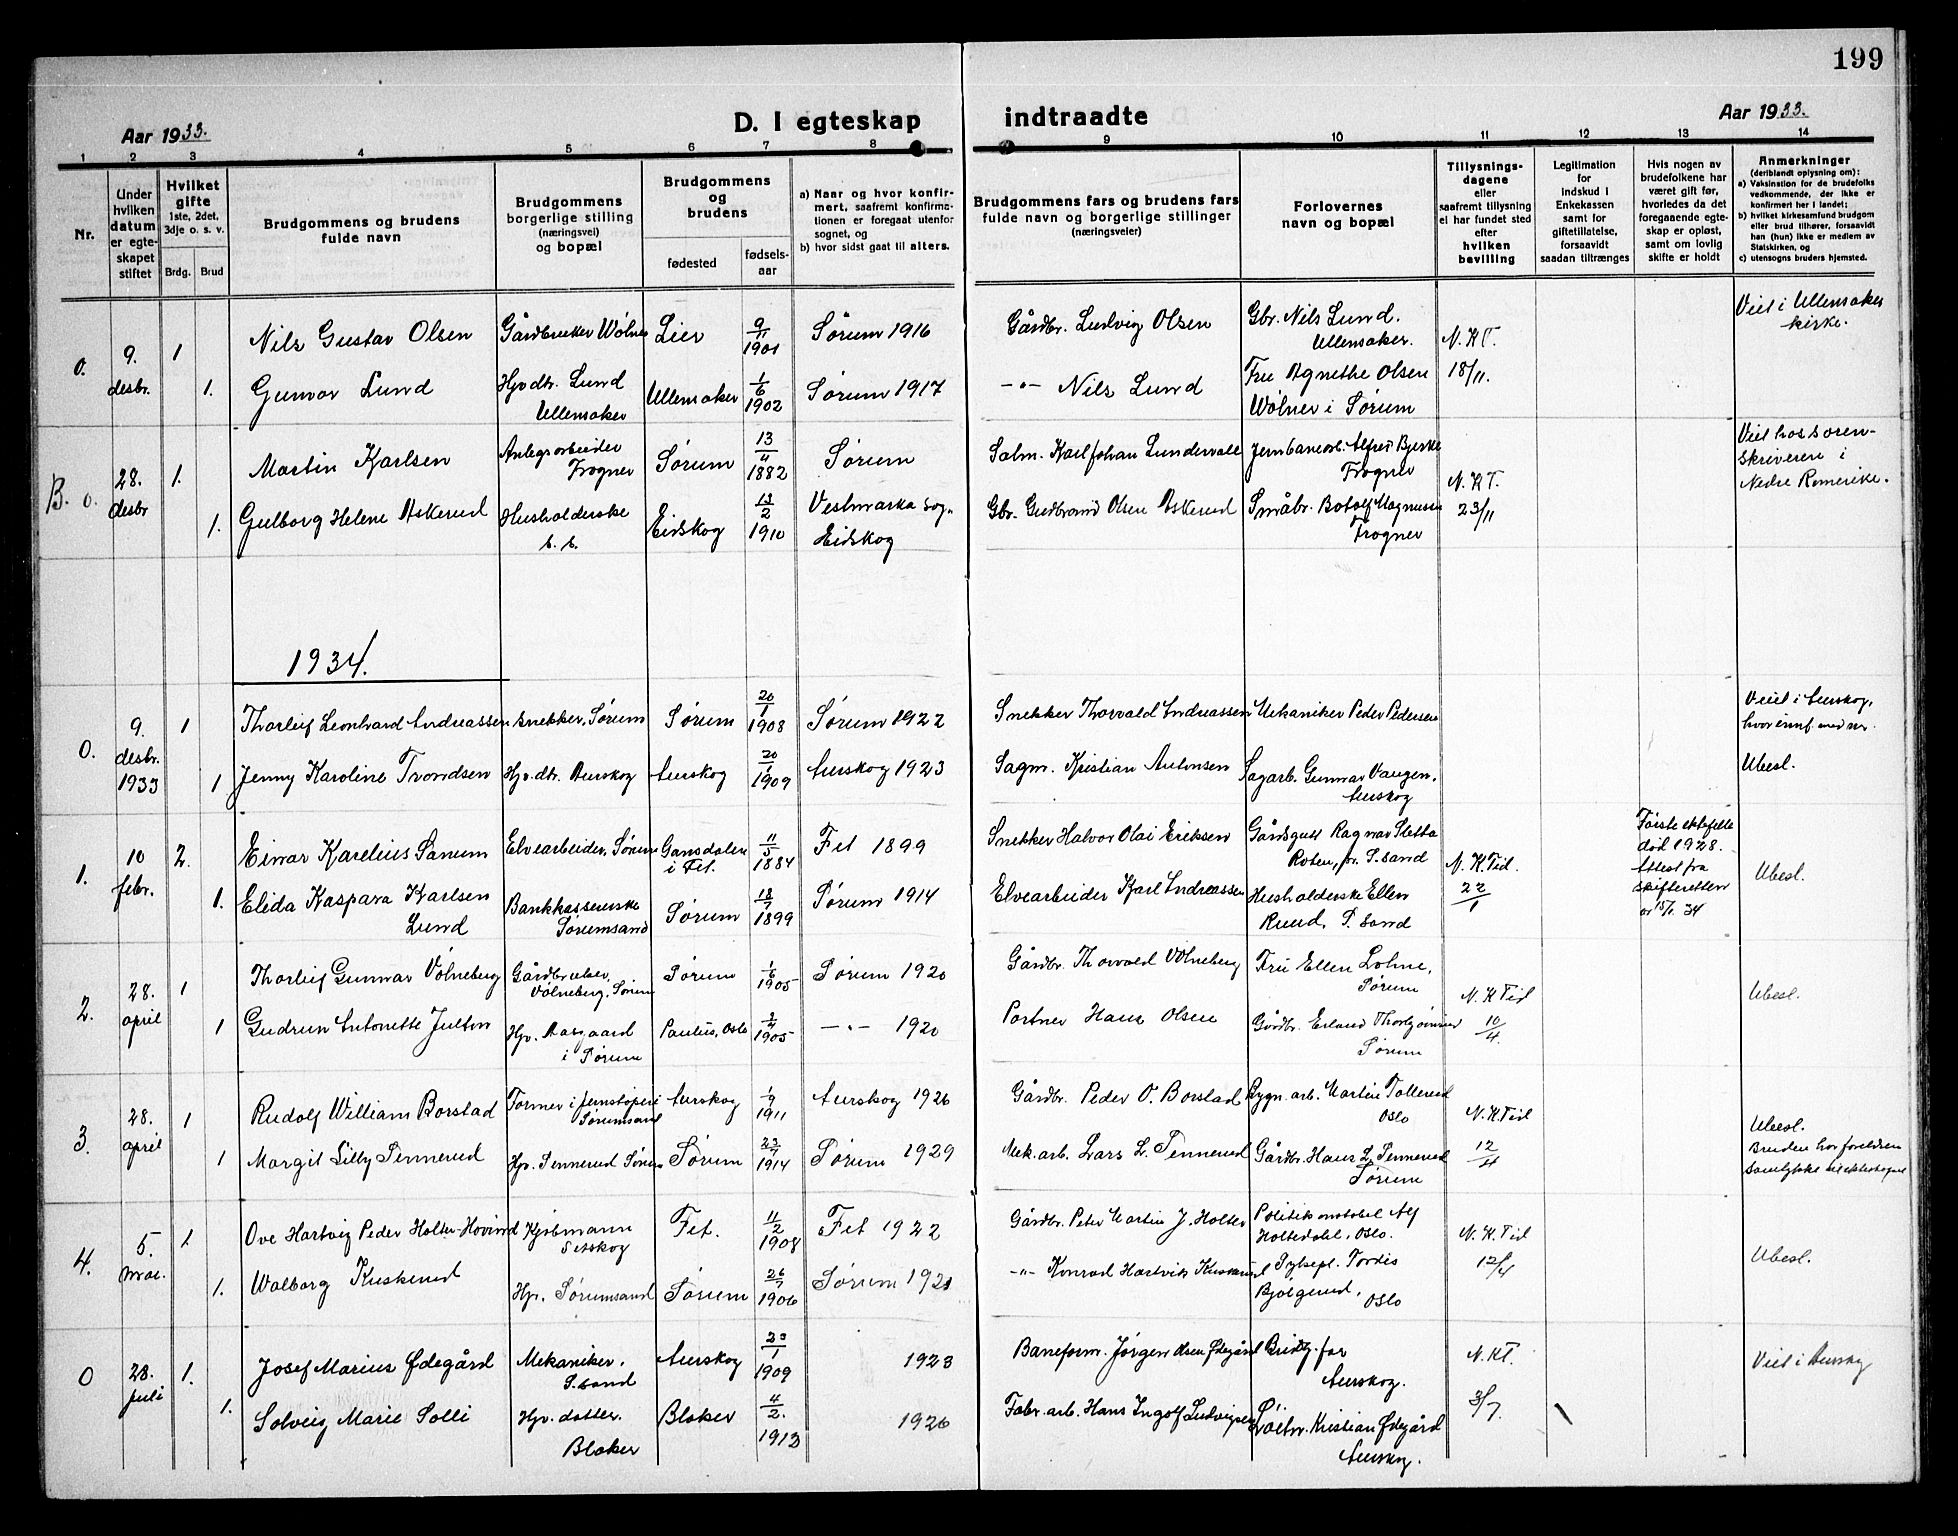 199
Aar 1933.
D. I egteskap indtraadte
Aar 1933.
1 2 3 4 5 6 7 8 9 10 11 12 13 14
Nr.
Under hvilken datum er egteskapet stiftet
Hvilket gifte 1ste, 2det, 3dje o. s. v.
Brdg. Brud
Brudgommens og brudens fulde navn
Brudgommens borgerlige stilling (næringsvei) og bopæl
Brudgommens og brudens
fødested
fødsels-aar
a) Naar og hvor konfirmert, saafremt konfirmationen er foregaat utenfor sognet, og
b) hvor sidst gaat til alters.
Brudgommens fars og brudens fars fulde navn og borgerlige stillinger (næringsveier)
Forlovernes navn og bopæl
Tillysningsdagene eller saafremt tillysning ei har fundet sted efter hvilken bevilling
Legitimation for indskud i Enkekassen samt for giftetillatelse, forsaavidt saadan tiltrænges
Hvis nogen av brudefolkene har været gift før, hvorledes da det foregaaende egteskap er opløst, samt om lovlig skifte er holdt
Anmerkninger (deriblandt oplysning om):
a) Vaksination for de brudefolks vedkommende, der ikke er konfirmert her i landet;
b) hvilket kirkesamfund brudgom eller brud tilhører, forsaavidt han (hun) ikke er medlem av Statskirken, og
c) utensogns bruders hjemsted.
0. 9. desbr. 1 Nils Gustav Olsen Gårdbruker Wølner Lier 9/11 1901 Sørum 1916 Gårdbr. Ludvig Olsen Gbr. Nils Lund. Ullensaker. N.K.T. 18/11. Viet i Ullensaker kirke.
1. Gunvor Lund Hjv.dtr. Lund Ullensaker Ullensaker 1/6 1902 Sørum 1917 -"- Nils Lund Fru Agnethe Olsen Wølner i Sørum
B. 0. 28. desbr 1. Martin Karlsen Anlegsarbeider Frogner Sørum 13/4 1882 Sørum Salm. Karl Johan Lundervall Jernbanearb. Alfred Bjerke Frogner N.K.T. 23/11 Viet hos sorenskriveren i Nedre Romerike.
1. Gulborg Helene Askerud Husholderske Eidskog 13/2 1910 Vestmarka sogn Eidskog Gbr. Gudbrand Olsen Askerud Småbr. Botolf Magnusen Frogner
1934.
0. 9. desbr. 1933 1 Thorleif Leonhard Andreassen Snekker, Sørum Sørum 20/1 1908 Sørum 1922 Snekker Thorvald Andreassen Mekaniker Peder Pedersen Viet i Aurskog,
1 Jenny Karoline Trondsen Hjv.dtr. Aurskog Aurskog 20/1 1909 Aurskog 1923 Sagm. Kristian Antonsen Sagarb. Gunnar Vangen, Aurskog Ubesl.
1. 10 febr. 2. Einar Karelius Sanum Elvearbeider, Sørum Gansdalen i Fet. 11/5 1884 Fet 1899 Snekker Halvor Olai Eriksen Gårdsgutt Ragnar Sletta S. sand N.K.Tid. 22/1 Første ektefelle død 1928. Attest fra skifteretten av 15/1. 34 Ubesl.
1. Elida Kaspara Karlsen Lund Bankkassererske Sørumsand Sørum 18/7 1899 Sørum 1914 Elvearbeider Karl Andreassen Husholderske Ellen Ruud, S. sand
2. 28. april 1 Thorleif Gunnar Vølneberg Gårdbr. Vølneberg, Sørum Sørum 1/6 1905 Sørum 1920 Gårdbr. Thorvald Vølneberg Fru Ellen Lohne, Sørum N.K.Tid 10/4. Ubesl.
1 Gudrun Antonette Julton Hjv. Aasgaard i Sørum Paulus, Oslo 2/4 1905 -"- 1920 Portner Hans Olsen Gårdbr. Erland Sørum
3. 28. april 1 Rudolf William Borstad Former i jernstøperi Sørumsand Aurskog 1/9 1911 Aurskog 1926 Gårdbr. Peder O. Borstad Bygn.arb. Martin Tollerud Oslo N.K.Tid 12/4 Ubesl.
1 Margit Lilly Tennerud Hjv. Tennerud Sørum Sørum 23/7 1914 Sørum 1929 Mek.arb. Lars L. Tennerud Gårdbr. Hans L. Tennerud Sørum Bruden har foreldrenes samtykke til ekteskapet
4. 5. mai. 1. Ove Hartvig Peder Holter-Hovind Kjøbmann Setskog Fet. 11/2 1908 Fet 1922 Gårdbr. Peter Martin J. Holter Politikonstabel Alf Holtedahl, Oslo. N.K.Tid 12/4 Ubesl.
1. Walborg Kuskerud Hjv. Sørumsand Sørum 26/7 1906 Sørum 1921 -"- Konrad Hartvik Kuskerud Sykepl. Tordis Bjølgerud, Oslo
0 28. juli 1. Josef Marius Ødegård Mekaniker. S. sand Aurskog 23/1 1909 1923 Baneform. Jørgen Olsen Ødegård Brudg. far Aurskog. N.K.T. 3/7. Viet i Aurskog
1. Solveig Marie Solli Hjv. datter. Blaker Blaker 4/2. 1913 1926 Fabr.arb. Hans Ingolf Ludvigsen Løitn. Kristian Ødegård Aurskog.